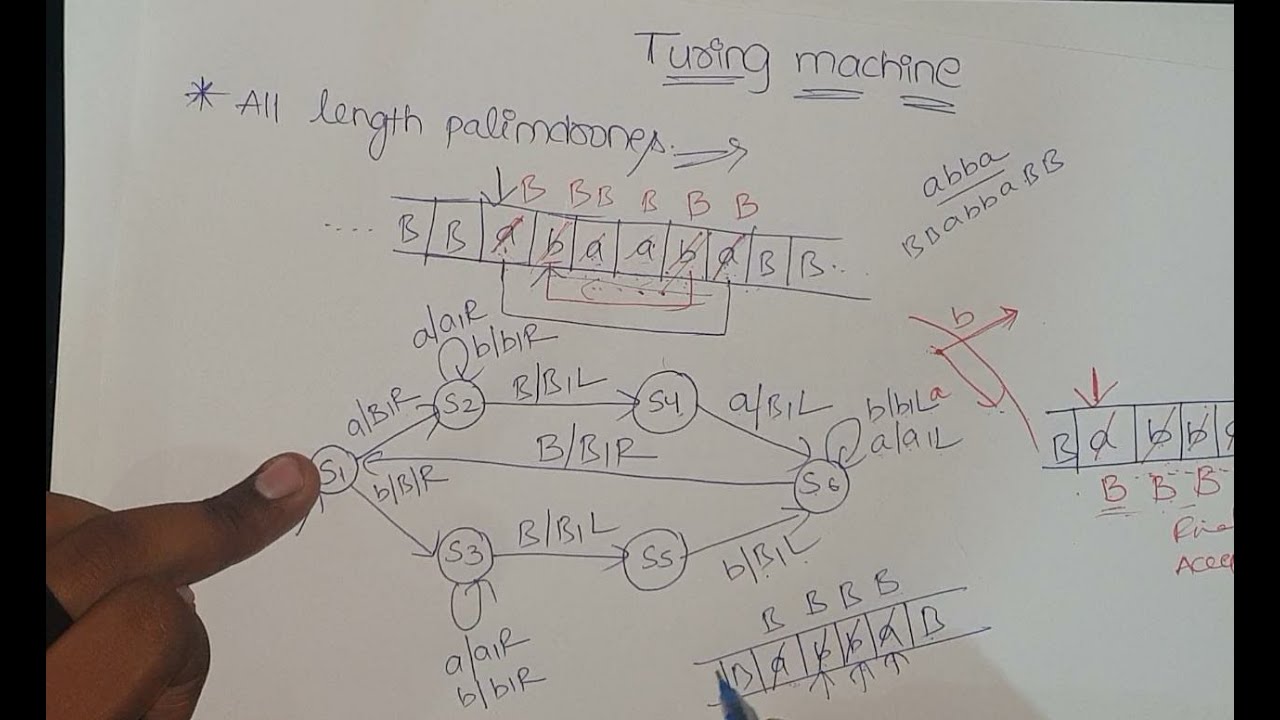 Turing machine
* All length palimdrones.
B B B B B B
.... B B a b a a b a B B..
abba
BBabbaBB
a/a,R
b/b,R
a/B,R S2 B/B,L S4 a/B,L
b/b,L a
a/a,L
b
B a b b
B B B
S1 B/B,R S6
b/B/R
S3 B/B,L S5 b/B,L
a/a,R
b/b,R
B B B B
B a b b a B